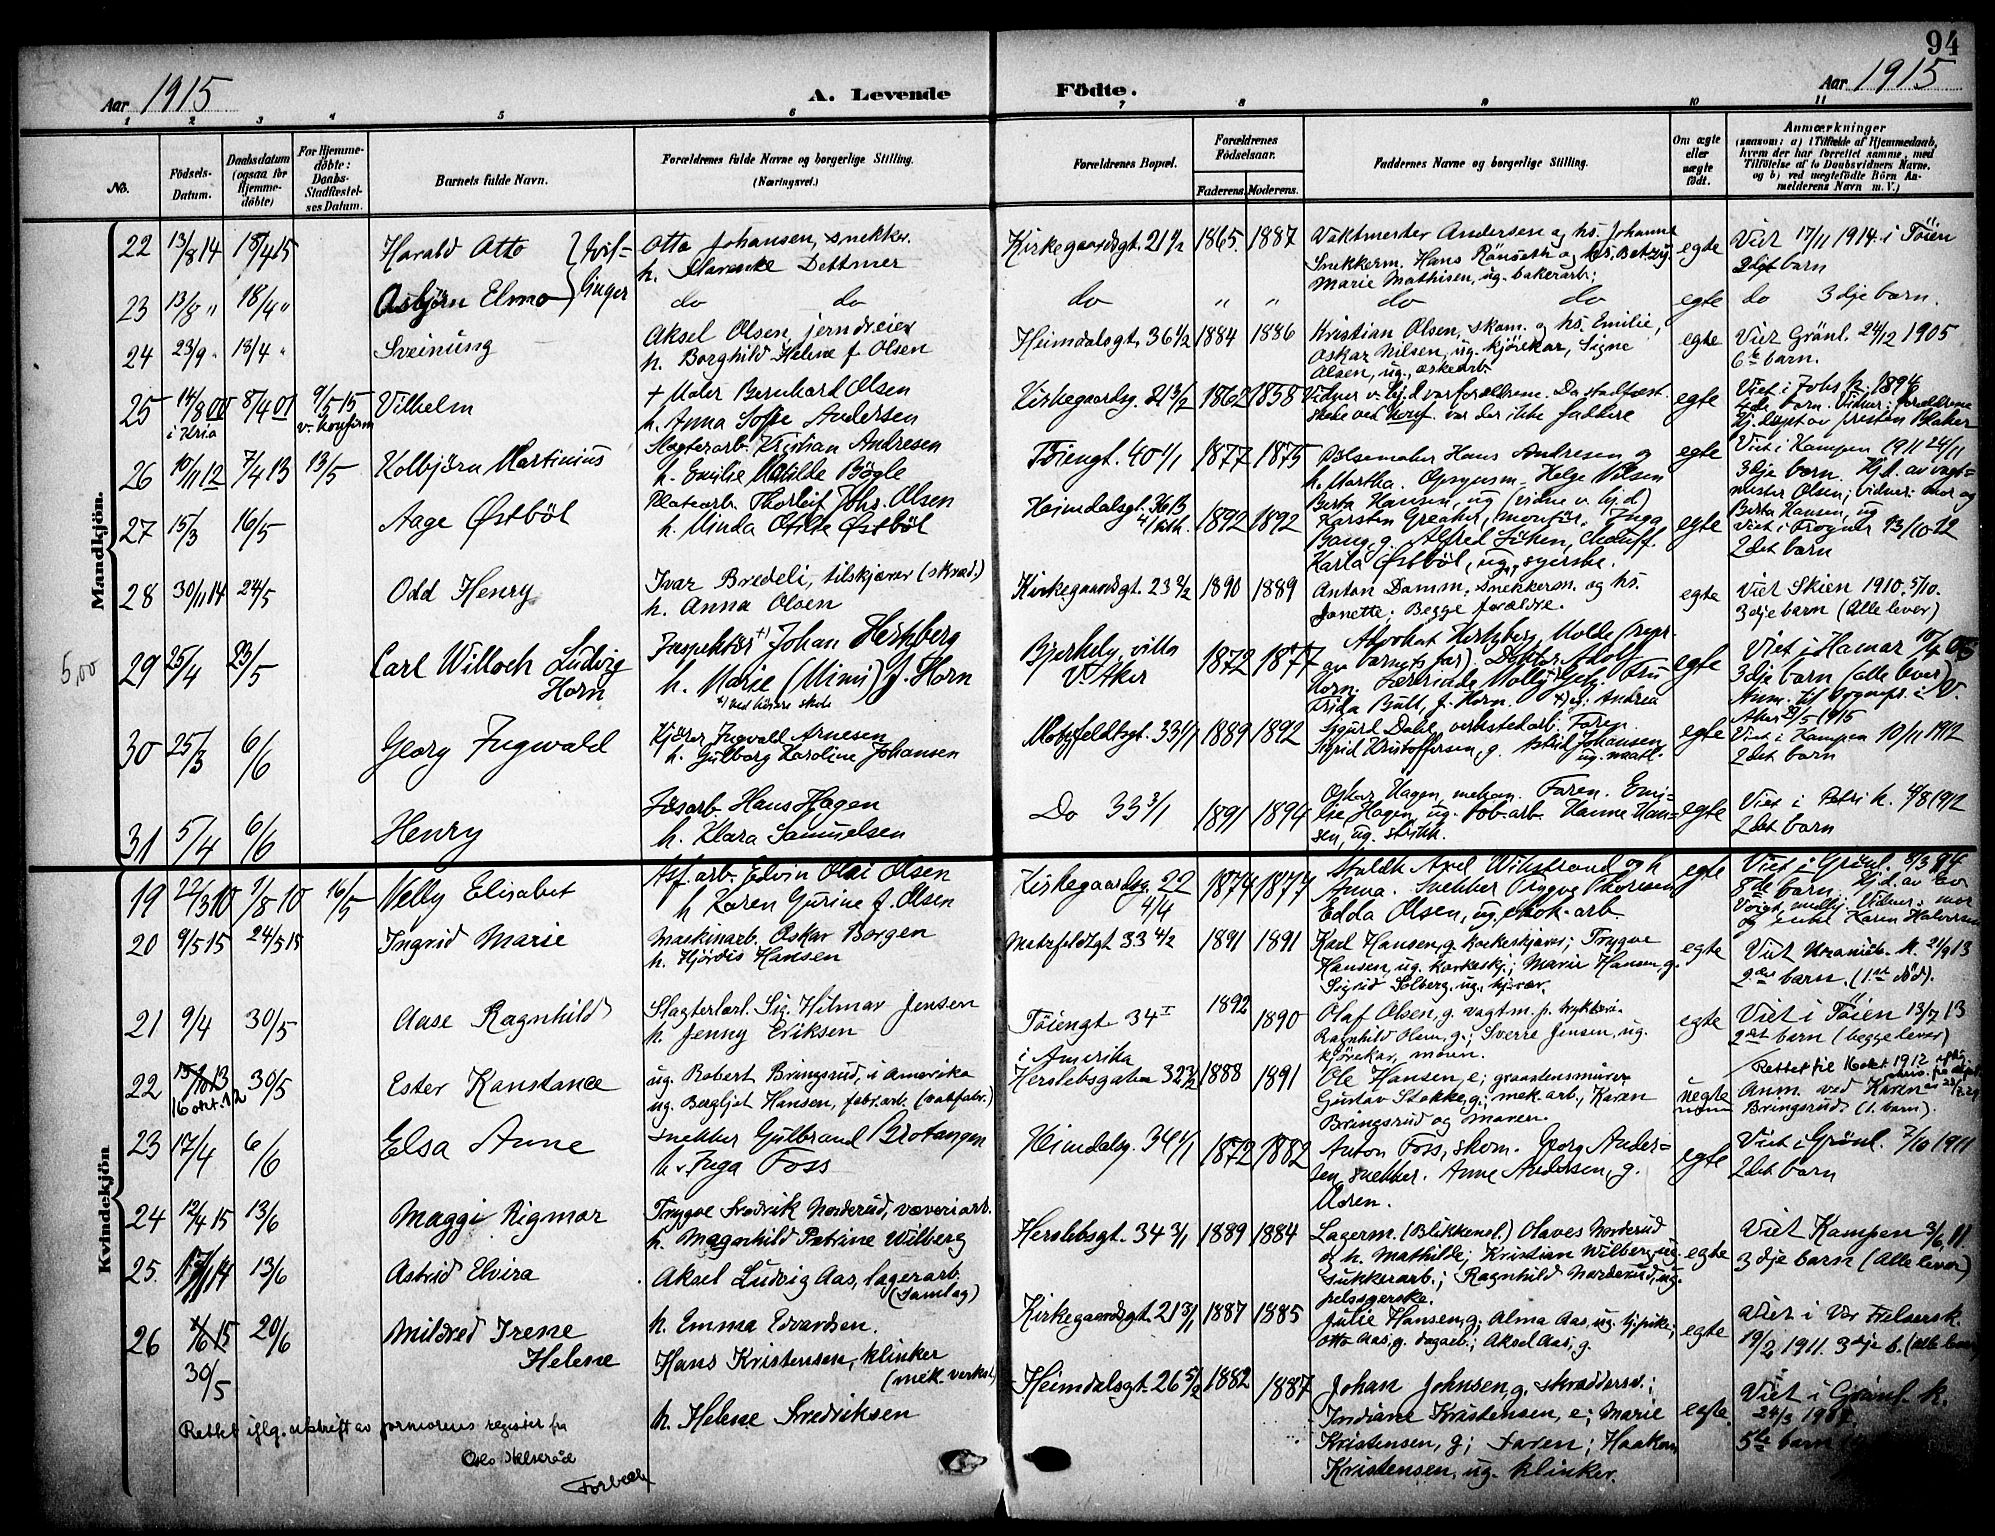 94
Aar 1915
A. Levende
Födte.
Aar 1915
1 2 3 4 5 6 7 8 9 10 11
No.
Födsels-
Datum.
Daabsdatum
(ogsaa for
Hjemme-
döbte)
For Hjemme-
döbte:
Daabs-
Stadfæstel-
ses Datum.
Barnets fulde Navn.
Forældrenes fulde Navne og borgerlige Stilling.
(Næringsvei.)
Forældrenes Bopæl.
Forældrenes
Födselsaar.
Faderens. Moderens.
Faddernes Navne og borgerlige Stilling.
Om ægte
eller
uægte
födt.
Anmærkninger
(saasom: a) i Tilfælde af Hjemmedaab,
hvem der har forrettet samme, med
Tilföielse af to Daabsvidners Navne.
og b) ved uægtefödte Börn An-
melderens Navn m. V.)
Mandkjön.
22 13/8 14 18/4 15 Harald Otto
Otto Johansen, snekker
h. Dettmer
Kirkegaardsgt. 21 1865. 1887
Vaktmester Andersen og hs. Johanna
Snekkerm. Hans og hs.
Marie Mathisen, ug. bakerarb;
egte
Viet 17/11 1914 i Töien
2det barn
23 13/8 " 18/4 " Asbjørn Elmo
do do
do " " do do egte do 3dje barn.
24 23/9 " 18/4 " Sveinung
Aksel Olsen, jerndreier
h. Borghild Helene f. Olsen
Heimdalsgt. 36 1/2 1884 1886
Kristian Olsen, skom. og hs. Emilie,
Oskar Nilsen, ug. kjörekar, Signe
Olsen, ug., æskearb.
egte
Viet Grönl. 24/12 1905
6te barn.
25 14/8 00 8/4 01 9/5 15 Vilhelm
i Kria v. Konfirm
+ Maler Bernhard Olsen
h. Anna Sofie Andersen
Kirkegaardsg. 21 3/2 1862 1858
Vidner v. hj.d var forældrene. Da stadfæst-
skede ved konf. var der ikke faddere
egte
Viet i Johs k. 1894
barn. Vidner: forældrene
Hj. döpt av presten Blaker
26 10/11 12 7/4 13 13/5 Kolbjörn Martinius
Slagterarb. Kristian Andresen
h. Emilie Matilde Bögle
Töiengt. 40 1/1 1877 1875
Hans Andresen og
h. Martha. Opsynsm. Helge Nilsen
Berta Hansen, ug (vidne v. hj.d)
egte
Viet i Kampen 1911 24/11
3dje barn. Hj.d. av vagt-
mester Olsen; vidner: mor og
Berta Hansen, ug
27 15/3 16/5 Aage Østböl
Platearb. Thorleif Johs. Olsen
h. Minda Otilde Østböl
Heimdalsgt. 1892 1892
Karsten montör. Inga
Bang, g. Alfred chauff.
Karla Østböl, ug., syerske.
egte
Viet i Frogner 13/10 12
2det barn
28 30/11 14 24/5 Odd Henry
Ivar Bredeli, tilskjærer (skræd.)
h. Anna Olsen
Kirkegaardsgt. 23 2/2 1890 1889
Anton Damm, snekkersv. og hs.
Janette; Begge forældre.
egte
Viet Skien 1910. 5/10.
3dje barn (Alle lever)
5,00
29 25/4 23/5 Carl Willoch Ludvig
Horn
Inspektör +) Johan Hertzberg
h. Marie (Mimi) f. Horn
+) ved höiere skole
Bjerkely, villa
V. Aker
1872 1877
Advokat Hertzberg, Molde (repr.
av barnets far). Doktor Adolf
Horn. Lærerinde Molly
Frida Bull, f. Horn.
egte
Viet i Hamar 10/4 05
3dje barn (alle lever)
Anm. til sognepr. i V.
Aker 29/5 1915
30 25/3 6/6 Georg Ingvald
Kjörer Ingvald Arnesen
h. Gulborg Karoline Johansen
Motzfeldtsgt. 33 1/1 1889 1892
Sigurd Dahl, verkstedarb. Faren.
Sigrid Kristoffersen, g. Astrid Johansen,
egte
Viet i Kampen 10/11 1912
2det barn
31 5/4 6/6 Henry
Hans Hagen
h. Klara Samuelsen
Do 33 3/1 1891 1894
Oskar Hagen, mekan. Faren. Emi-
lie Hagen, ug. tob.arb. Hanne Han-
sen, ug. strikk.
egte
Viet i Petri k. 4/8 1912
2det barn
Kvindekjön
19 22/3 10 7/8 10 16/5 Nelly Elisabet
Asf.arb. Edvin Olai Olsen
h. Karen Gurine f. Olsen
Kirkegaardsg. 22
4/4
1874 1877
Axel Wikstrand og h
Anna. Snekker Trygve Thoresen
Edda Olsen, ug, chok.arb.
egte
Viet i Grönl. 8/3 94
8de barn. Hj.d. av
Vidner: mor
og enke Karen Halvorsen
20 9/5 15 24/5 15 Ingrid Marie
Maskinarb. Oskar Borgen
h. Hjördis Hansen
Motzfeldtsgt 33 4/2 1891 1891
Karl Hansen, g. korkeskjærer; Trygve
Hansen, ug. korkeskj.; Marie Hansen, g.
Sigrid Solberg, ug.
egte
Viet Uranienb. k. 21/9 13
2det barn. (1ste död).
21 9/4 30/5 Aase Ragnhild
Sig. Hilmar Jensen
h. Jenny Eriksen
Töiengt 34 I 1892 1890
Olaf Olsen, g. vagtm. p. trykkeri
Ragnhild Olsen, g.; Sverre Jensen, ug.
kjörekar, moren.
egte
Viet i Töien 13/7 13
2det barn (begge lever)
22 15/10 13 30/5 Ester Konstance
16 okt. 12
ug. Robert Bringsrud, i Amerika
ug. Bergljot Hansen, fabr.arb.
i Amerika
Herslebsgaten 32 3/2 1888 1891
Ole Hansen, e; graastensmurer
Gustav Stokke, g; mek. arb., Karen
Bringsrud og moren.
uegte
Rettet til 16 okt 1912
Anm. ved Karen
Bringsrud (1. barn).
23 17/4 6/6 Elsa Anne
Snekker Gulbrand Brotangen
h. Inga Foss
Heimdalsg. 34 1/1 1872 1882
Anton Foss, skom. Georg Ander-
sen, snekker. Anne Andersen, g.
egte
Viet i Grönl. 7/10 1911
2det barn
24 12/4 15 13/6 Maggi Rigmor
Trygve Fredrik Norderud, væveriarb.
h. Magnhild Petrine Wilberg
Herslebsgt. 34 3/1 1889 1884
Lagerm. (Blikkensl.) Olaves Norderud
og h. Mathilde; Kristian Wilberg, ug.
sukkerarb.; Ragnhild Norderud, ug.
egte
Viet Kampen 3/6 11
3dje barn (Alle lever)
25. 13/6 Astrid Elvira
Aksel Ludvig Aas, lagerarb.
(Samlag)
h. Emma Edvardsen.
Kirkegaardsgt. 21 3/1 1887 1885
Julie Hansen, g; Alma Aas, ug. hj.pike;
Otto Aas, g. dagarb.; Aksel Aas, g.
egte
Viet i Vor Frelsersk.
19/2 1911. 3dje b. (alle lever)
26 20/6 Mildred Irene
30/5 Helene
Hans Kristensen, klinker
(mek. verkst)
h. Helene Fredriksen
Heimdalsgt. 26 5/2 1882 1887
Johan Johnsen, g. skræddersv.;
Indiane Kristensen, e; Marie
Kristensen, g; Faren; Haakon
Kristensen, ug. klinker.
egte.
Viet i Grönl. k.
5te barn
Rettet iflg. utskrift av formorens register fra
Oslo skifteråd